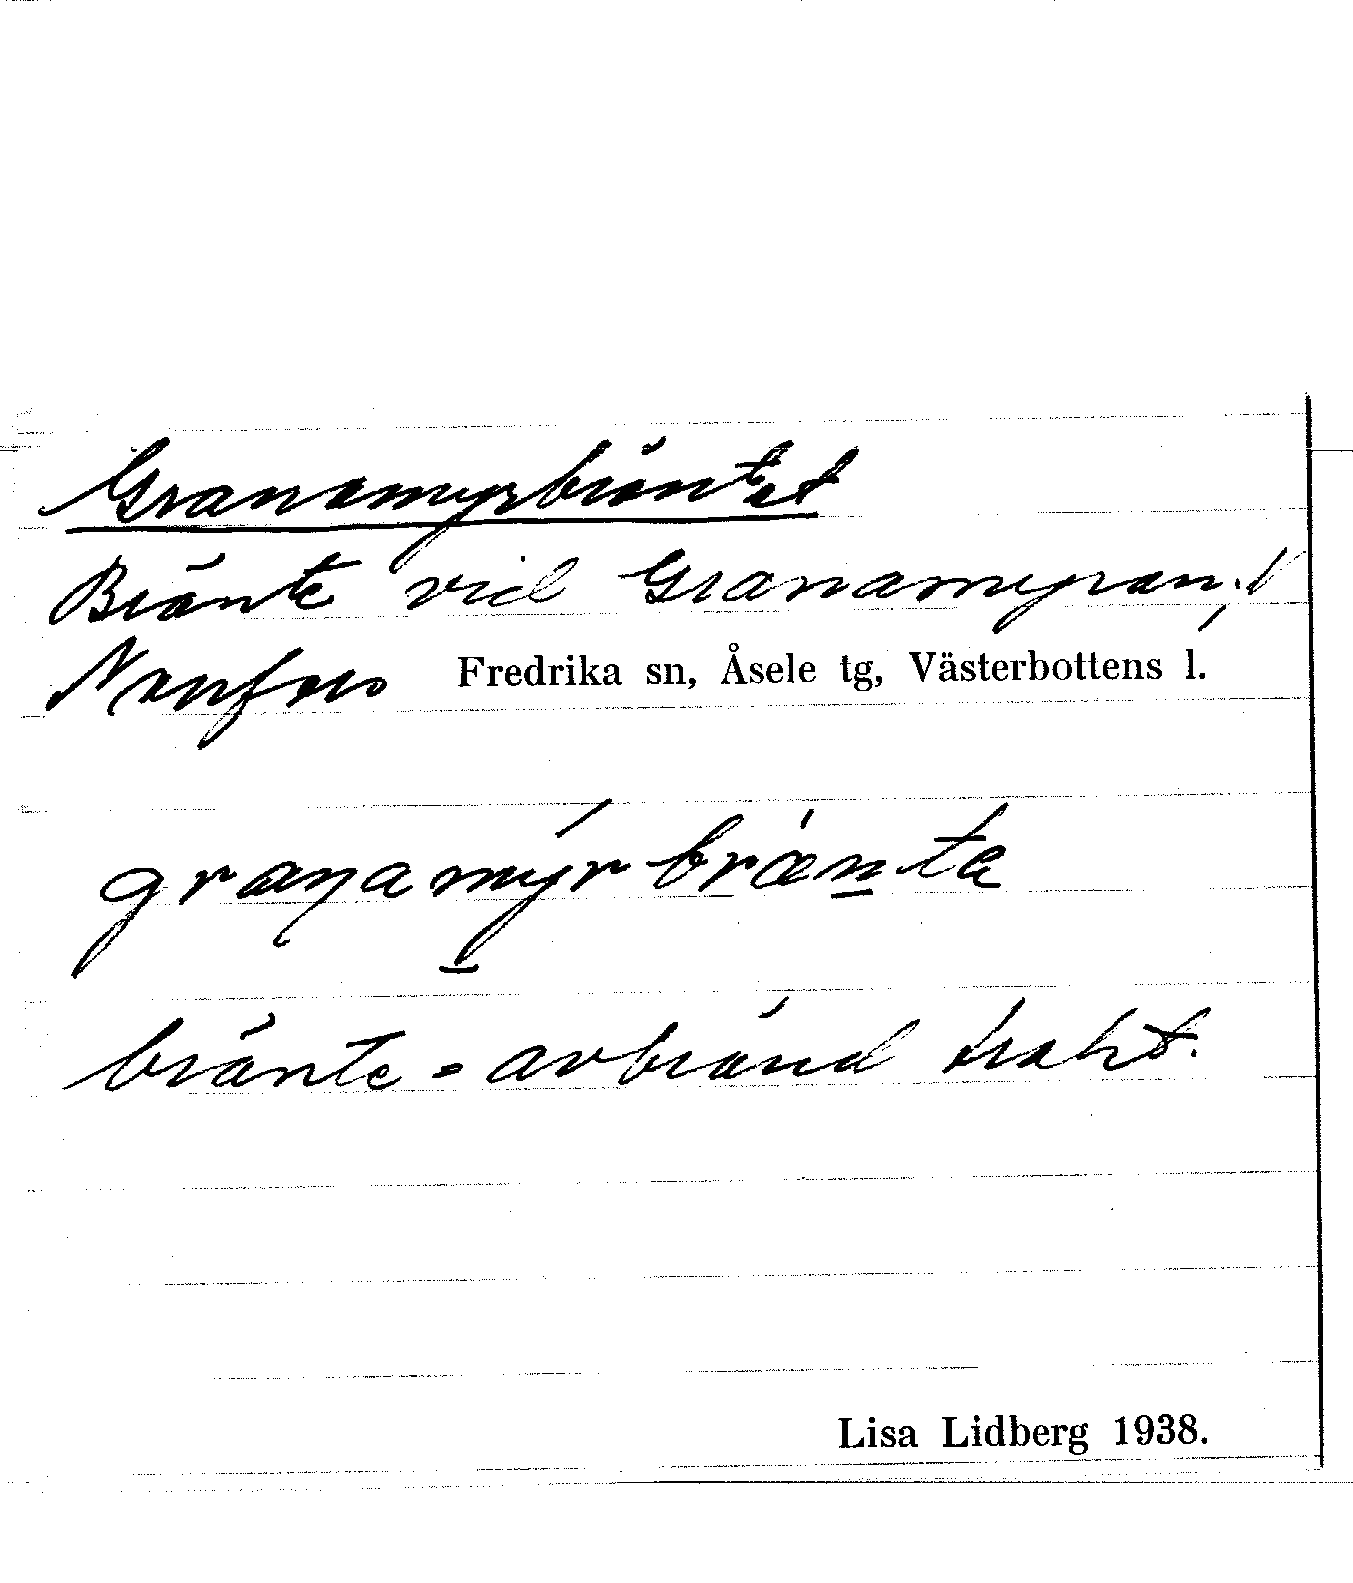 Granamyrbräntet
Bränte vid Granamyran, V
Fredrika sn, Åsele tg, Västerbottens l.
granamýr bræ̀nta
bränte = avbränd trakt.
Lisa Lidberg 1938.